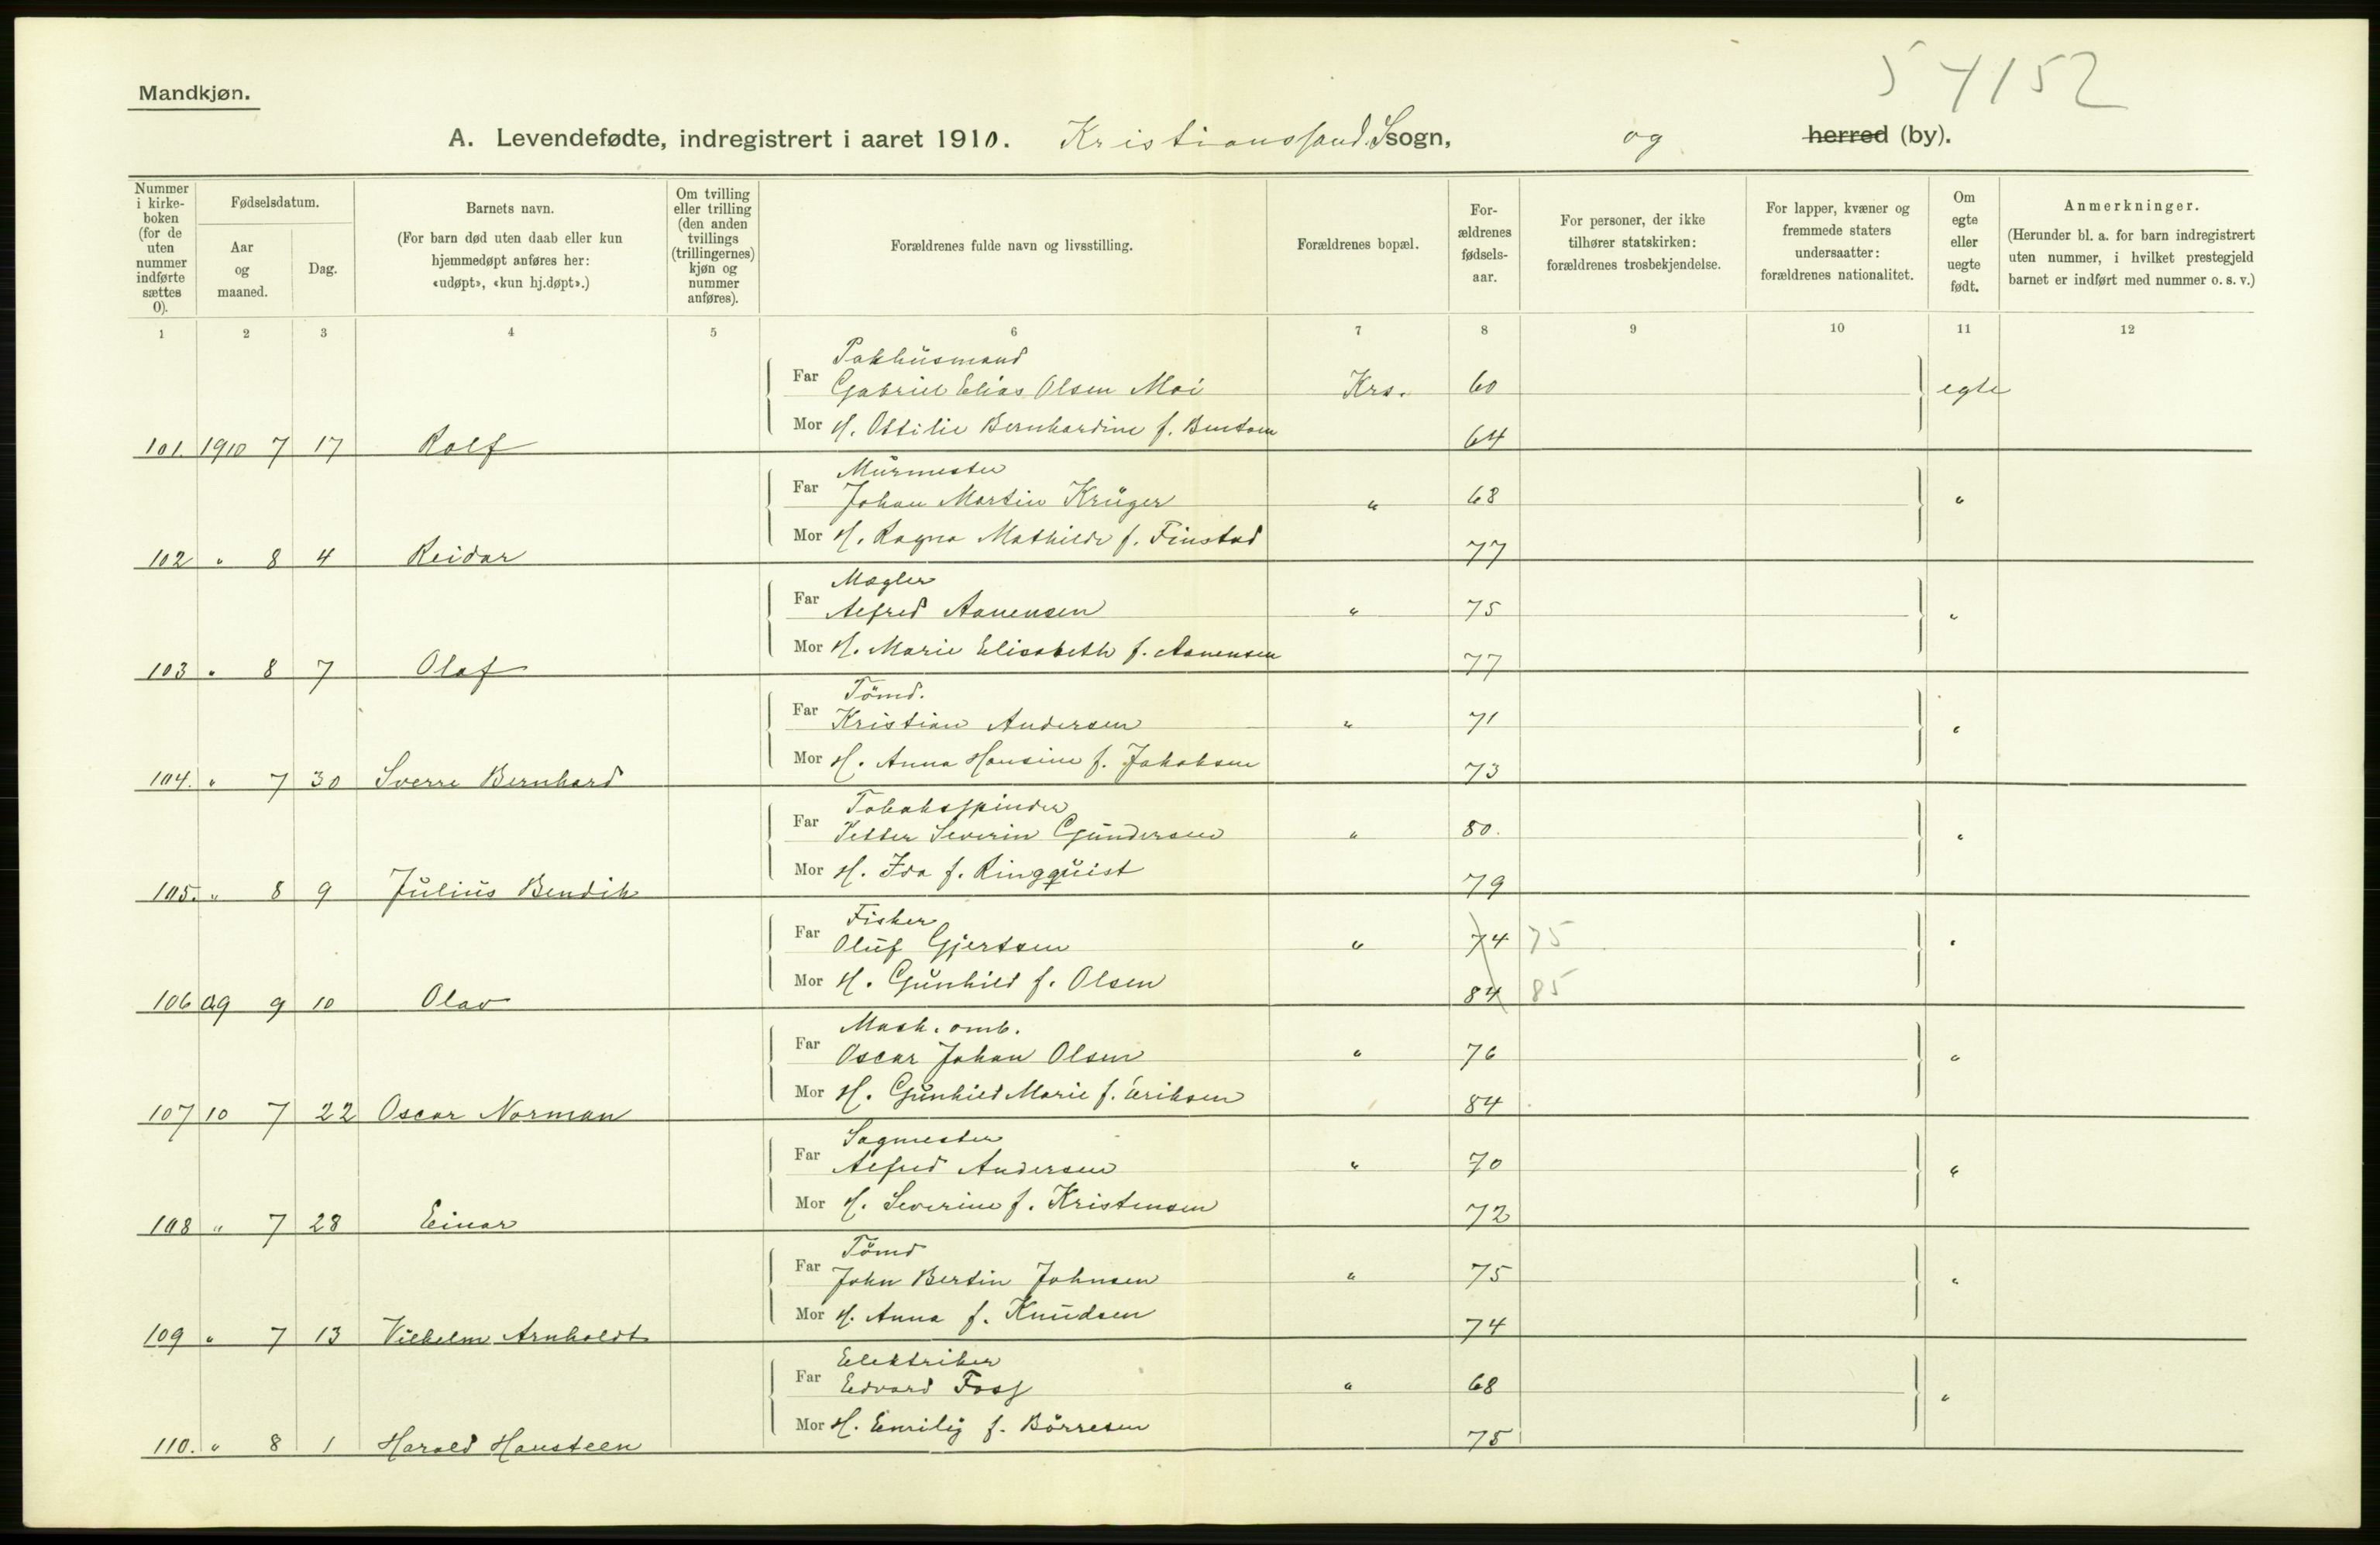 54152
Mandkjøn.
A. Levendefødte, indregistrert i aaret 1910. Kristianssand S sogn, og herred (by).
Nummer i kirke-boken (for de uten nummer indførte sættes 0).
Fødselsdatum.
Aar og maaned.
Dag.
Barnets navn.
(For barn død uten daab eller kun hjemmedøpt anføres her: «udøpt», «kun hj.døpt».)
Om tvilling eller trilling (den anden tvillings (trillingernes) kjøn og nummer anføres).
Forældrenes fulde navn og livsstilling.
Forældrenes bopæl.
For-ældrenes fødsels-aar.
For personer, der ikke tilhører statskirken: forældrenes trosbekjendelse.
For lapper, kvæner og fremmede staters undersaatter: forældrenes nationalitet.
Om egte eller uegte født.
Anmerkninger.
(Herunder bl. a. for barn indregistrert uten nummer, i hvilket prestegjeld barnet er indført med nummer o. s. v.)
1 2 3 4 5 6 7 8 9 10 11 12
Pakhusmand
Far Gabriel Elias Olsen Moi Krs. 60 egte
Mor H. Ottilie Bernhardine f. Bentsen 64
101. 1910 7 17 Rolf
Murmester
Far Johan Martin Krüger " 68 "
Mor H. Ragna Mathilde f. Finstad 77
102 " 8 4 Reidar
Mægler
Far Alfred Aanensen " 75 "
Mor H. Marie Elisabeth f. Aanensen 77
103 " 8 7 Olaf
Tömd.
Far Kristian Andersen " 71 "
Mor H. Anna Hansine f. Jakobsen 73
104. " 7 30 Sverre Bernhard
Tobaksspinder
Far Petter Severin Gundersen " 80. "
Mor H. Ida f. Ringquist 79
105. " 8 9 Julius Bendik
Fisker
Far Oluf Gjertsen " 74 75 "
Mor H. Gunhild f. Olsen 84 85
106 09 9 10 Olav
Mask. omb.
Far Oscar Johan Olsen " 76 "
Mor H. Gunhild Marie f. Eriksen 84
107 10 7 22 Oscar Norman
Sagmester
Far Alfred Andersen " 70 "
Mor H. Severine f. Kristensen 72
108 " 7 28 Einar
Tömd
Far John Bertin Johnsen " 75 "
Mor H. Anna f. Knudsen 74
109 " 7 13 Vilhelm Arnholdt
Elektriker
Far Edvard Foss " 68 "
Mor H. Emilie f. Börresen 75
110. " 8 1 Harald Hansteen